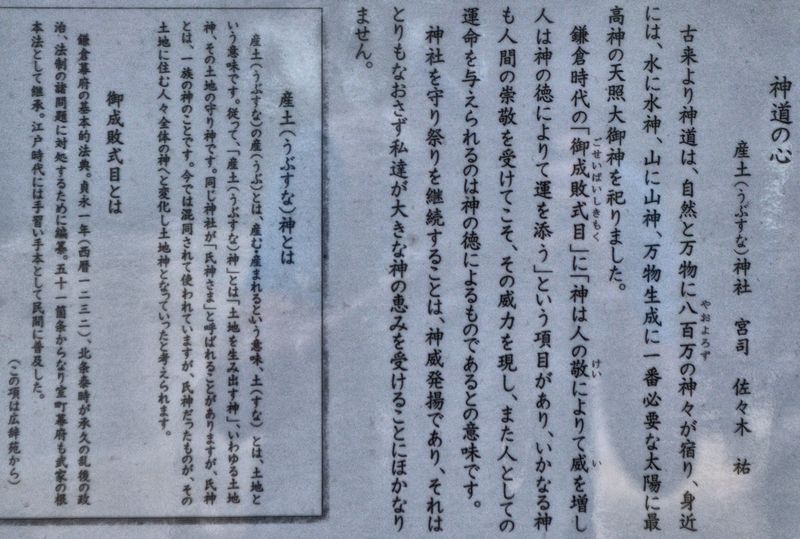 神道の心
産土(うぶすな)神社 宮司 佐々木 祐
古来より神道は、自然と万物に八百万の神々が宿り、身近
やおよろず
には、水に水神、山に山神、万物生成に一番必要な太陽に最
高神の天照大御神を祀りました。
鎌倉時代の「御成敗式目」に「神は人の敬によりて威を増し
ごせいばいしきもく
けい
い
人は神の徳によりて運を添う」という項目があり、いかなる神
も人間の崇敬を受けてこそ、その威力を現し、また人としての
運命を与えられるのは神の徳によるものであるとの意味です。
神社を守り祭りを継続することは、神威発揚であり、それは
とりもなおさず私達が大きな神の恵みを受けることにほかなり
ません。
産土(うぶすな)神とは
産土(うぶすな)の産(うぶ)とは、産む・産まれるという意味、土(すな)とは、土地と
いう意味です。従って、「産土(うぶすな)神」とは「土地を生み出す神」、いわゆる土地
神、その土地の守り神です。同じ神社が「氏神さま」と呼ばれることがありますが、氏神
とは、一族の神のことです。今では混同されて使われていますが、氏神だったものが、その
土地に住む人々全体の神へと変化し土地神となっていったと考えられます。
御成敗式目とは
鎌倉幕府の基本的法典。貞永一年(西暦一二三二)、北条泰時が承久の乱後の政
治、法制の諸問題に対処するために編纂。五十一箇条からなり室町幕府も武家の根
本法として継承。江戸時代には手習い手本として民間に普及した。
(この項は広辞苑から)